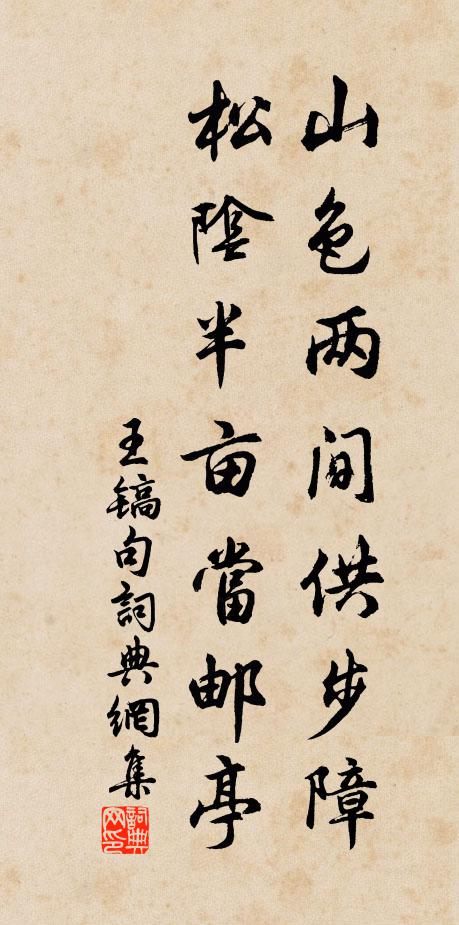 山色两间供步障
松陰半亩當邮亭
王镐句詞典網集
詞典网印